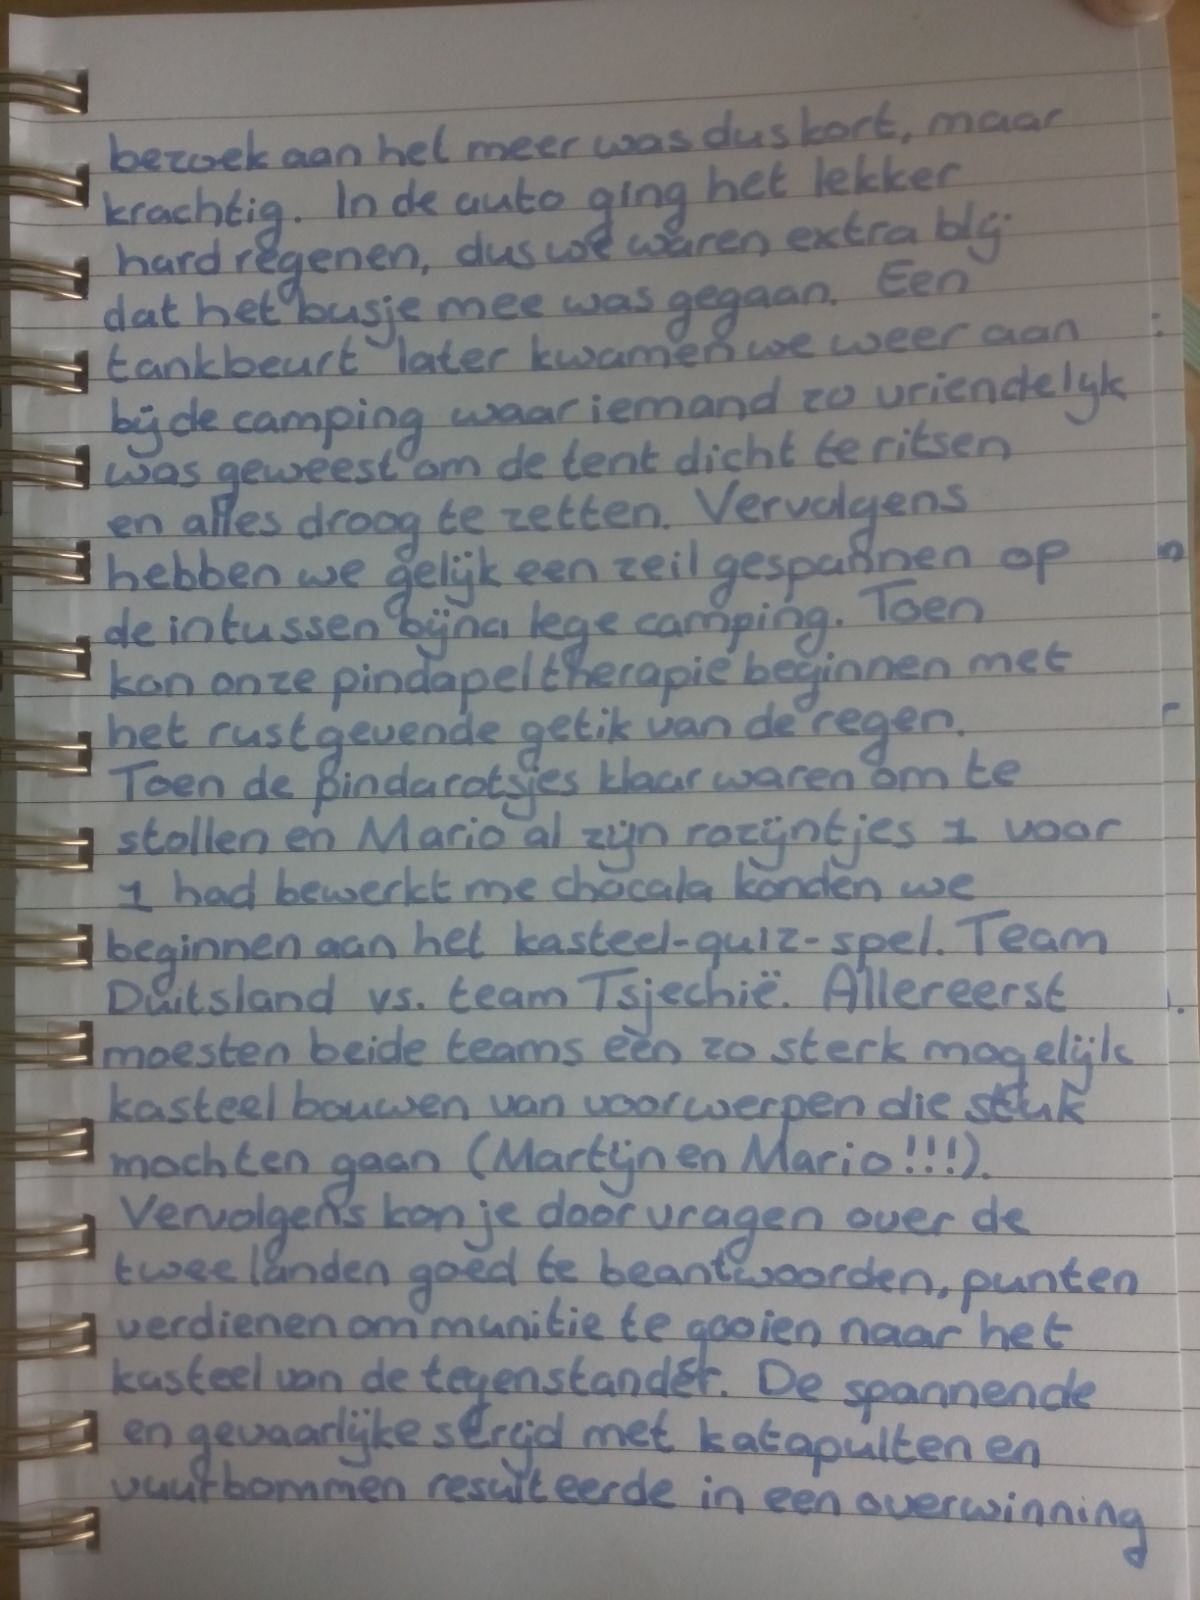 bezoek aan het meer was dus kort, maar
krachtig. In de auto ging het lekker
hard regenen, dus we waren extra blij
dat het busje mee was gegaan. Een
tankbeurt later kwamen we weer aan
bij de camping waar iemand zo vriendelijk
was geweest om de tent dicht te ritsen
en alles droog te zetten. Vervolgens
hebben we gelijk een zeil gespannen op
de intussen bijna lege camping. Toen
kon onze pindapeltherapie beginnen met
het rustgevende getik van de regen.
Toen de pindarotsjes klaar waren om te
stollen en Mario al zijn rozijntjes 1 voor
1 had bewerkt me chocola konden we
beginnen aan het kasteel-quiz-spel. Team
Duitsland vs. team Tsjechië. Allereerst
moesten beide teams een zo sterk mogelijk
kasteel bouwen van voorwerpen die stuk
mochten gaan (Martijn en Mario!!!).
Vervolgens kon je door vragen over de
twee landen goed te beantwoorden, punten
verdienen om munitie te gooien naar het
kasteel van de tegenstander. De spannende
en gevaarlijke strijd met katapulten en
vuurbommen resulteerde in een overwinning